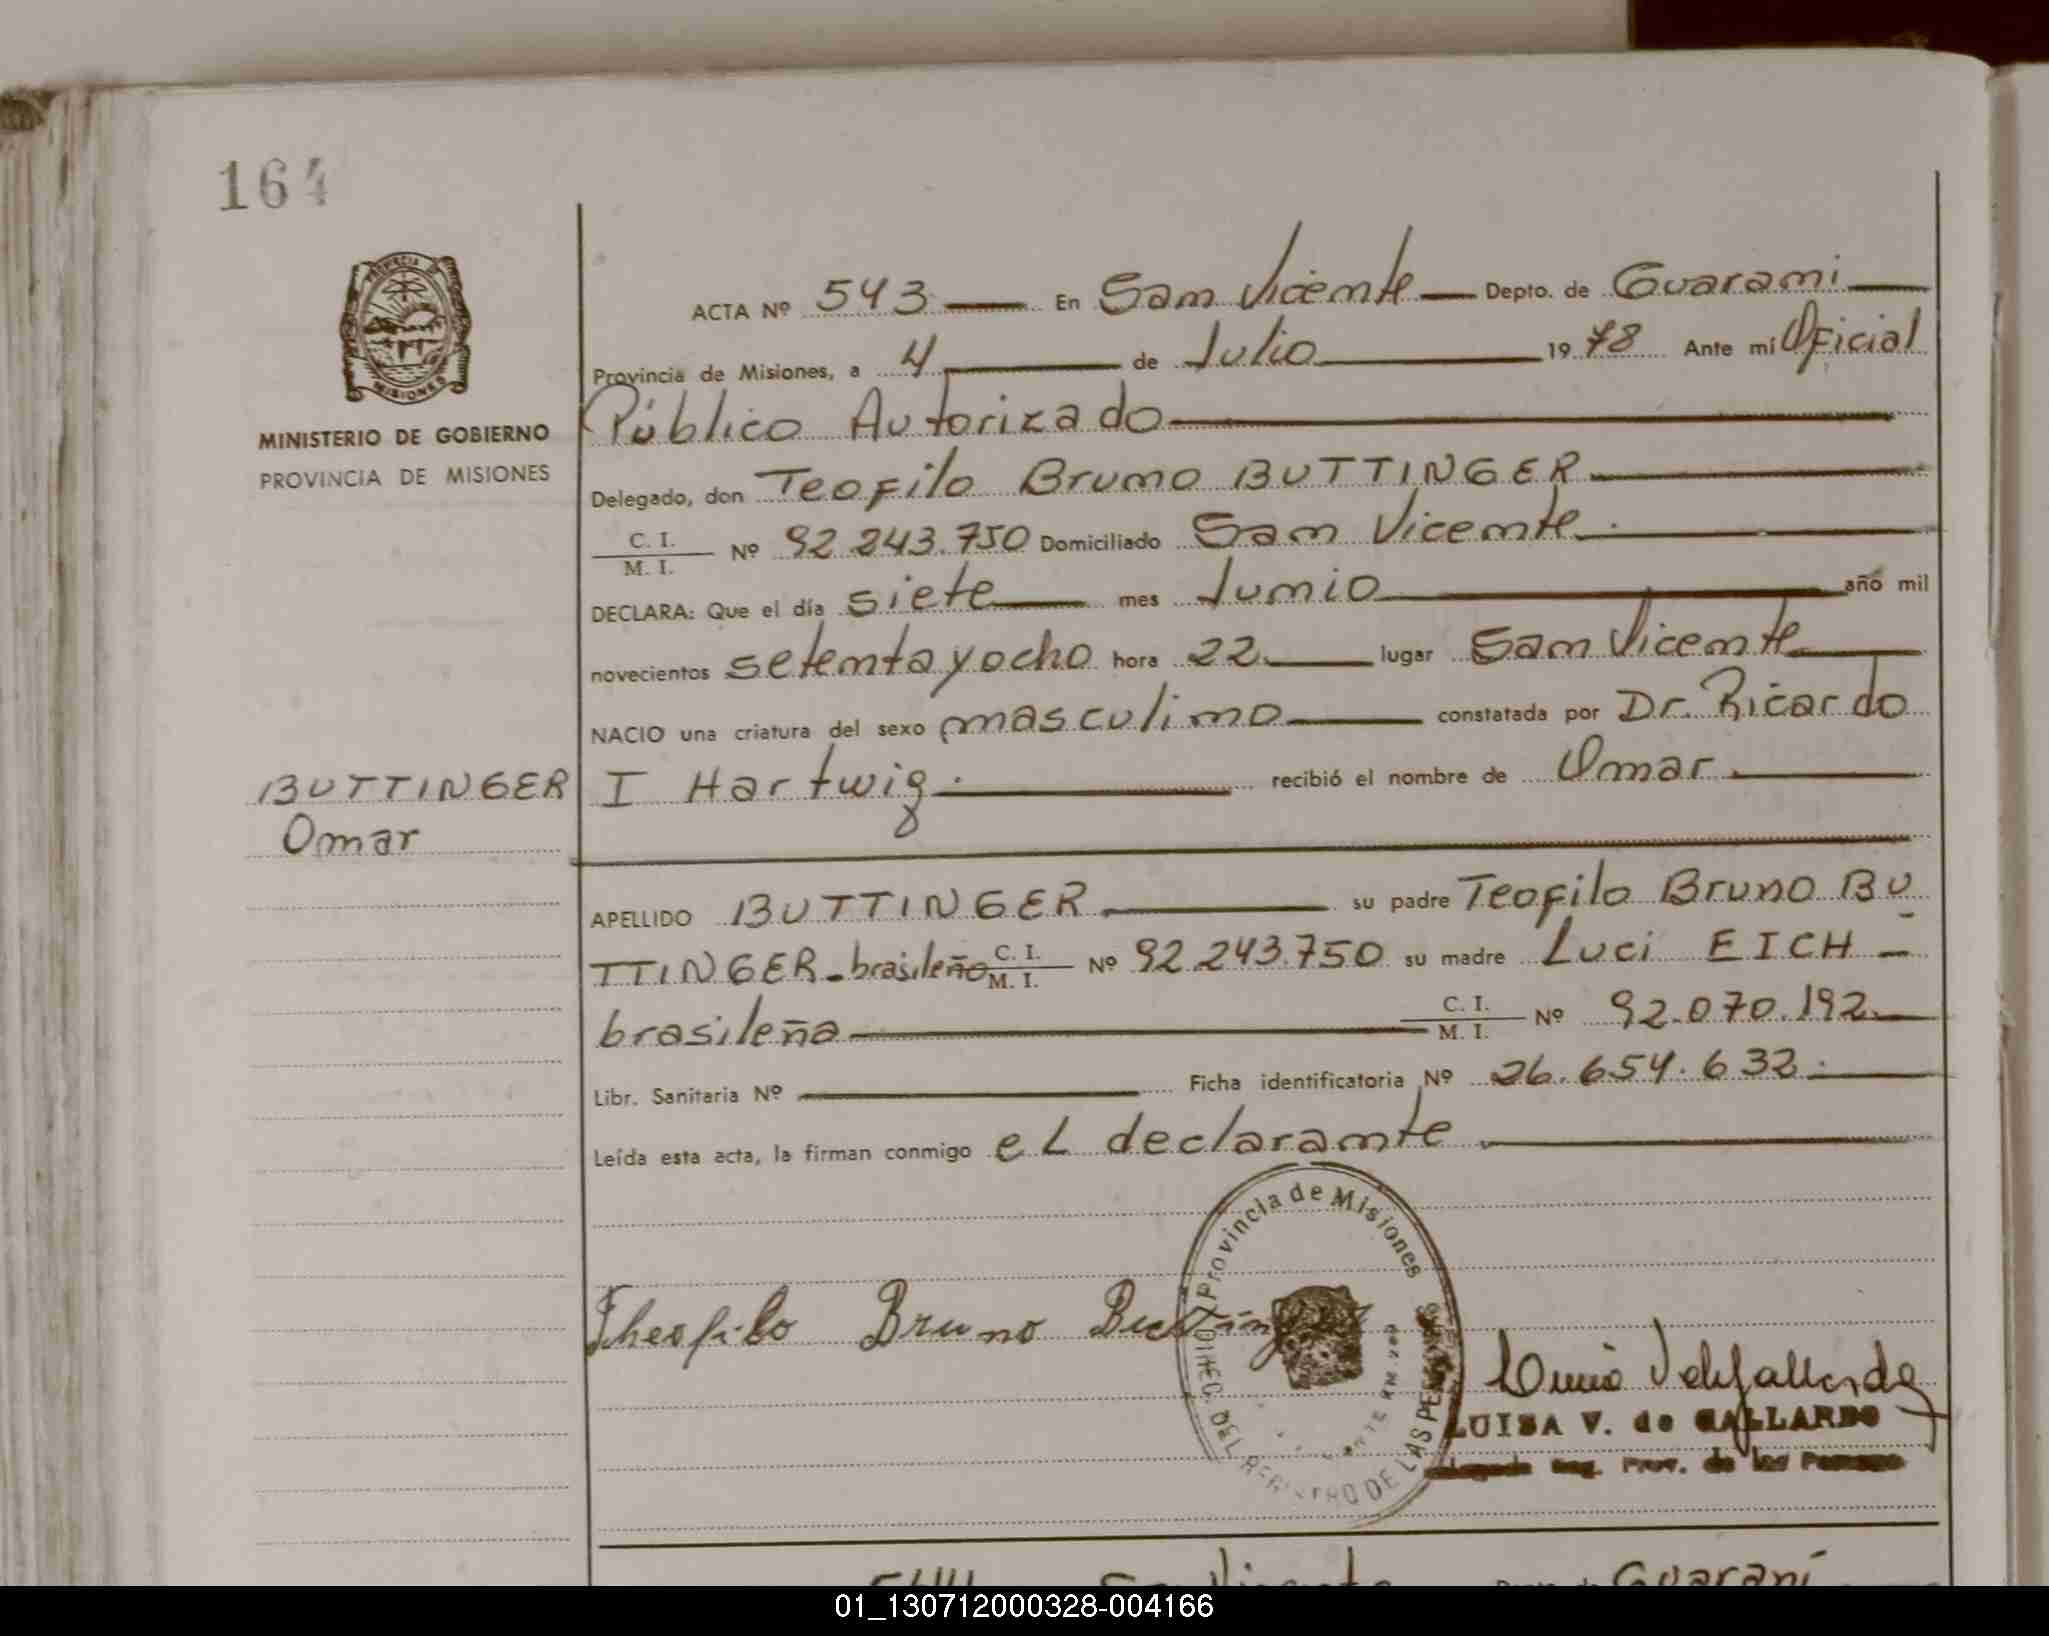 164
PROVINCIA
MISIONES
MINISTERIO DE GOBIERNO
PROVINCIA DE MISIONES
ACTA Nº 543 En San Vicente Depto. de Guarani
Provincia de Misiones, a 4 de Julio 1978 Ante mi Oficial
Público Autorizado
Delegado, don Teofilo Bruno BUTTINGER
C. I.
M. I. Nº 92.243.750 Domiciliado San Vicente.
DECLARA: Que el día siete mes Junio año mil
novecientos setenta y ocho hora 22 lugar San Vicente
NACIO una criatura del sexo masculino constatada por Dr. Ricardo
I Hartwig. recibió el nombre de Omar
BUTTINGER
Omar
APELLIDO BUTTINGER su padre Teofilo Bruno BU
TTINGER - brasileño C. I. M. I. Nº 92.243.750 su madre Luci EICH -
brasileña C. I. M. I. Nº 92.070.192
Libr. Sanitaria Nº Ficha identificatoria Nº 26.654.632.
Leída esta acta, la firman conmigo eL declarante
Provincia de Misiones
DEL REGISTRO DE LAS PERSONAS
Theofilo Bruno Butting
LUISA V. de GALLARDO
Reg. Prov. de las Personas
544 San Vicente Depto. de Guaraní
01_130712000328-004166